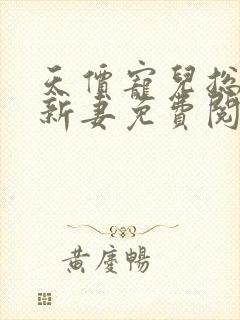 天價寵兒總
新妻免費閱
黃慶暢